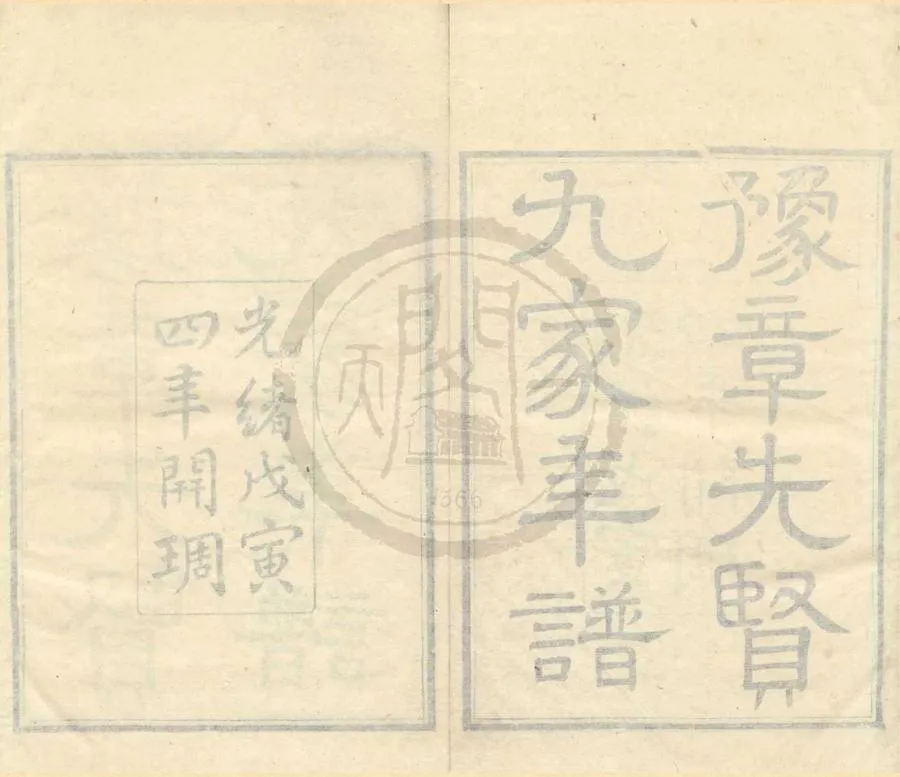 豫章先賢
九家年譜
光緒戊寅
四年開琱
天
閣
1566